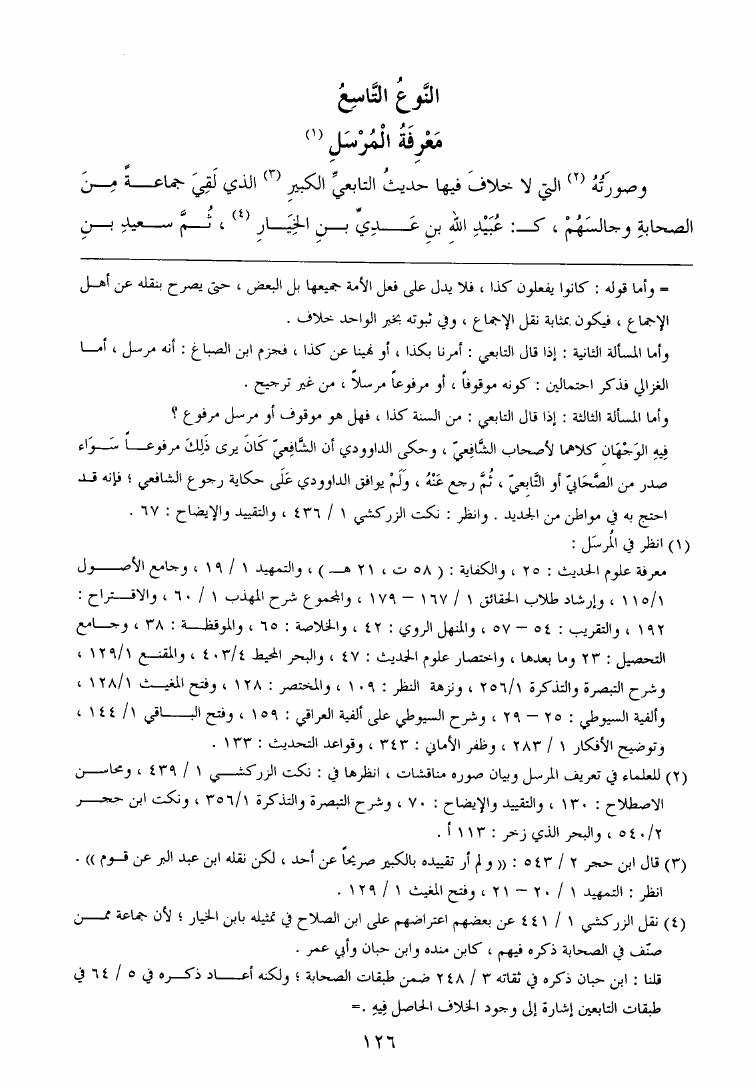 النَّوعُ التَّاسِعُ
مَعْرِفَةُ الْمُرْسَلِ (١)
وصورتُهُ (٢) التي لا خلافَ فيها حديثُ التابعيِّ الكبيرِ (٣) الذي لَقِيَ جماعةً مِنَ
الصحابةِ وجالسَهُمْ ، كـ: عُبَيْدِ اللهِ بنِ عَدِيِّ بنِ الخِيَارِ (٤) ، ثُمَّ سعيدِ بنِ
= وأما قوله : كانوا يفعلون كذا ، فلا يدل على فعل الأمة جميعها بل البعض ، حتى يصرح بنقله عن أهل
الإجماع ، فيكون بمثابة نقل الإجماع ، وفي ثبوته بخبر الواحد خلاف .
وأما المسألة الثانية : إذا قال التابعي : أمرنا بكذا ، أو نهينا عن كذا ، فجزم ابن الصباغ : أنه مرسل ، أما
الغزالي فذكر احتمالين : كونه موقوفاً ، أو مرفوعاً مرسلاً ، من غير ترجيح .
وأما المسألة الثالثة : إذا قال التابعي : من السنة كذا ، فهل هو موقوف أو مرسل مرفوع ؟
فِيهِ الوَجْهَانِ كلاهما لأصحاب الشَّافِعيِّ ، وحكى الداوودي أن الشَّافِعيّ كَانَ يرى ذَلِكَ مرفوعاً سَوَاء
صدر من الصَّحَابيّ أو التَّابِعيّ ، ثُمَّ رجع عَنْهُ ، وَلَمْ يوافق الداوودي عَلَى حكاية رجوع الشافعي ؛ فإنه قد
احتج به في مواطن من الجديد . وانظر : نكت الزركشي ١ / ٤٣٦ ، والتقييد والإيضاح : ٦٧ .
(١) انظر في المُرسَل :
معرفة علوم الحديث : ٢٥ ، والكفاية : ( ٥٨ ت ، ٢١ هـ ) ، والتمهيد ١ / ١٩ ، وجامع الأصول
١١٥/١ ، وإرشاد طلاب الحقائق ١ / ١٦٧ – ١٧٩ ، والمجموع شرح المهذب ١ / ٦٠ ، والاقتراح :
١٩٢ ، والتقريب : ٥٤ – ٥٧ ، والمنهل الروي : ٤٢ ، والخلاصة : ٦٥ ، والموقظة : ٣٨ ، وجامع
التحصيل : ٢٣ وما بعدها ، واختصار علوم الحديث : ٤٧ ، والبحر المحيط ٤٠٣/٤ ، والمقنع ١٢٩/١ ،
وشرح التبصرة والتذكرة ٢٥٦/١ ، ونزهة النظر : ١٠٩ ، والمختصر : ١٢٨ ، وفتح المغيث ١٢٨/١ ،
وألفية السيوطي : ٢٥ – ٢٩ ، وشرح السيوطي على ألفية العراقي : ١٥٩ ، وفتح الباقي ١/ ١٤٤ ،
وتوضيح الأفكار ١ / ٢٨٣ ، وظفر الأماني : ٣٤٣ ، وقواعد التحديث : ١٣٣ .
(٢) للعلماء في تعريف المرسل وبيان صوره مناقشات ، انظرها في : نكت الزركشي ١ / ٤٣٩ ، ومحاسن
الاصطلاح : ١٣٠ ، والتقييد والإيضاح : ٧٠ ، وشرح التبصرة والتذكرة ٣٥٦/١ ، ونكت ابن حجر
٥٤٠/٢ ، والبحر الذي زخر : ١١٣ أ .
(٣) قال ابن حجر ٢ / ٥٤٣ : (( ولم أر تقييده بالكبير صريحاً عن أحد ، لكن نقله ابن عبد البر عن قوم )) .
انظر : التمهيد ١ / ٢٠ – ٢١ ، وفتح المغيث ١ / ١٢٩ .
(٤) نقل الزركشي ١ / ٤٤١ عن بعضهم اعتراضهم على ابن الصلاح في تمثيله بابن الخيار ؛ لأن جماعة ممن
صنّف في الصحابة ذكره فيهم ، كابن منده وابن حبان وأبي عمر .
قلنا : ابن حبان ذكره في ثقاته ٣ / ٢٤٨ ضمن طبقات الصحابة ؛ ولكنه أعاد ذكره في ٥ / ٦٤ في
طبقات التابعين إشارة إلى وجود الخلاف الحاصل فِيهِ .=
١٢٦